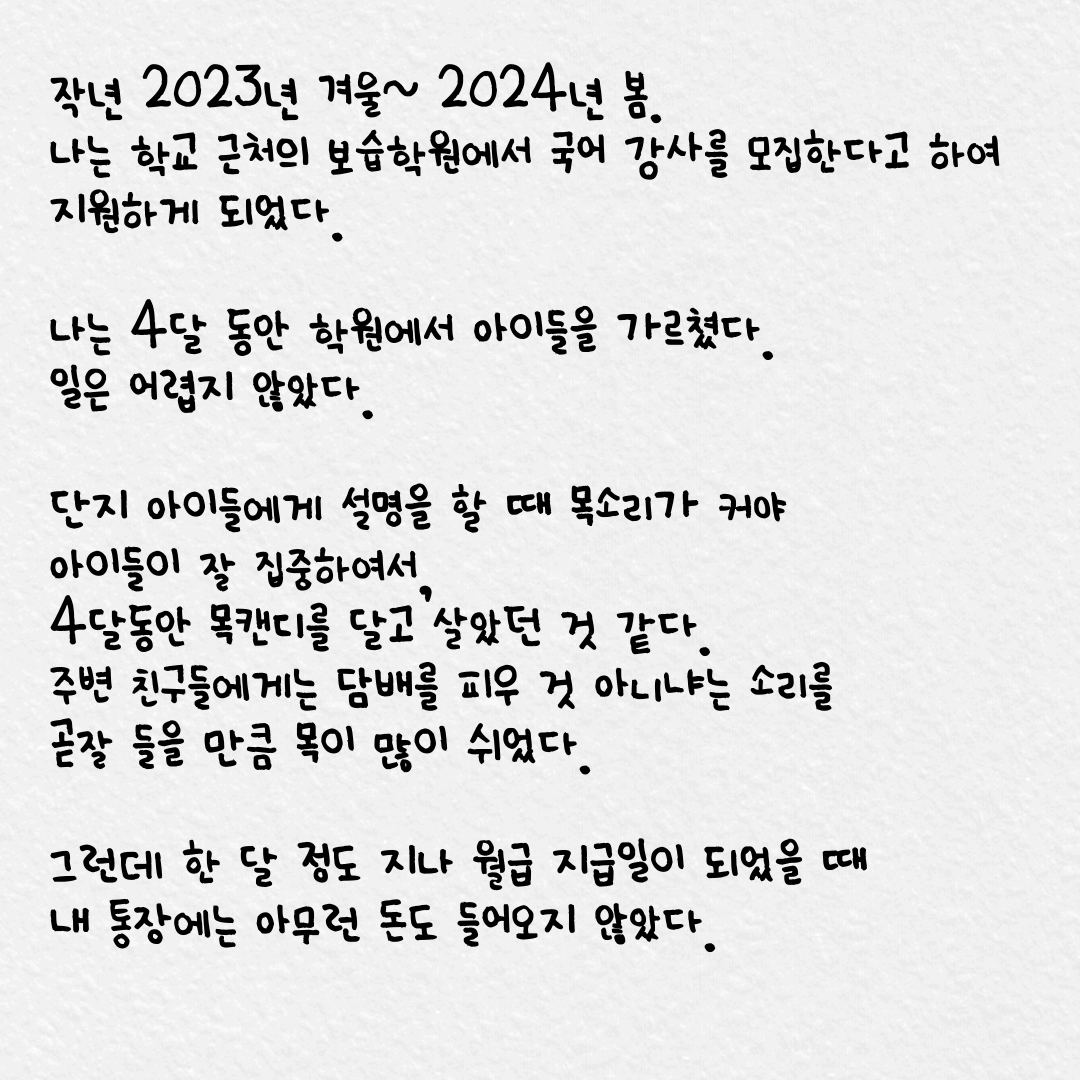 작년 2023년 겨울~ 2024년 봄.
나는 학교 근처의 보습학원에서 국어 강사를 모집한다고 하여
지원하게 되었다.
나는 4달 동안 학원에서 아이들을 가르쳤다.
일은 어렵지 않았다.
단지 아이들에게 설명을 할 때 목소리가 커야
아이들이 잘 집중하여서,
4달동안 목캔디를 달고 살았던 것 같다.
주변 친구들에게는 담배를 피우 것 아니냐는 소리를
곧잘 들을 만큼 목이 많이 쉬었다.
그런데 한 달 정도 지나 월급 지급일이 되었을 때
내 통장에는 아무런 돈도 들어오지 않았다.